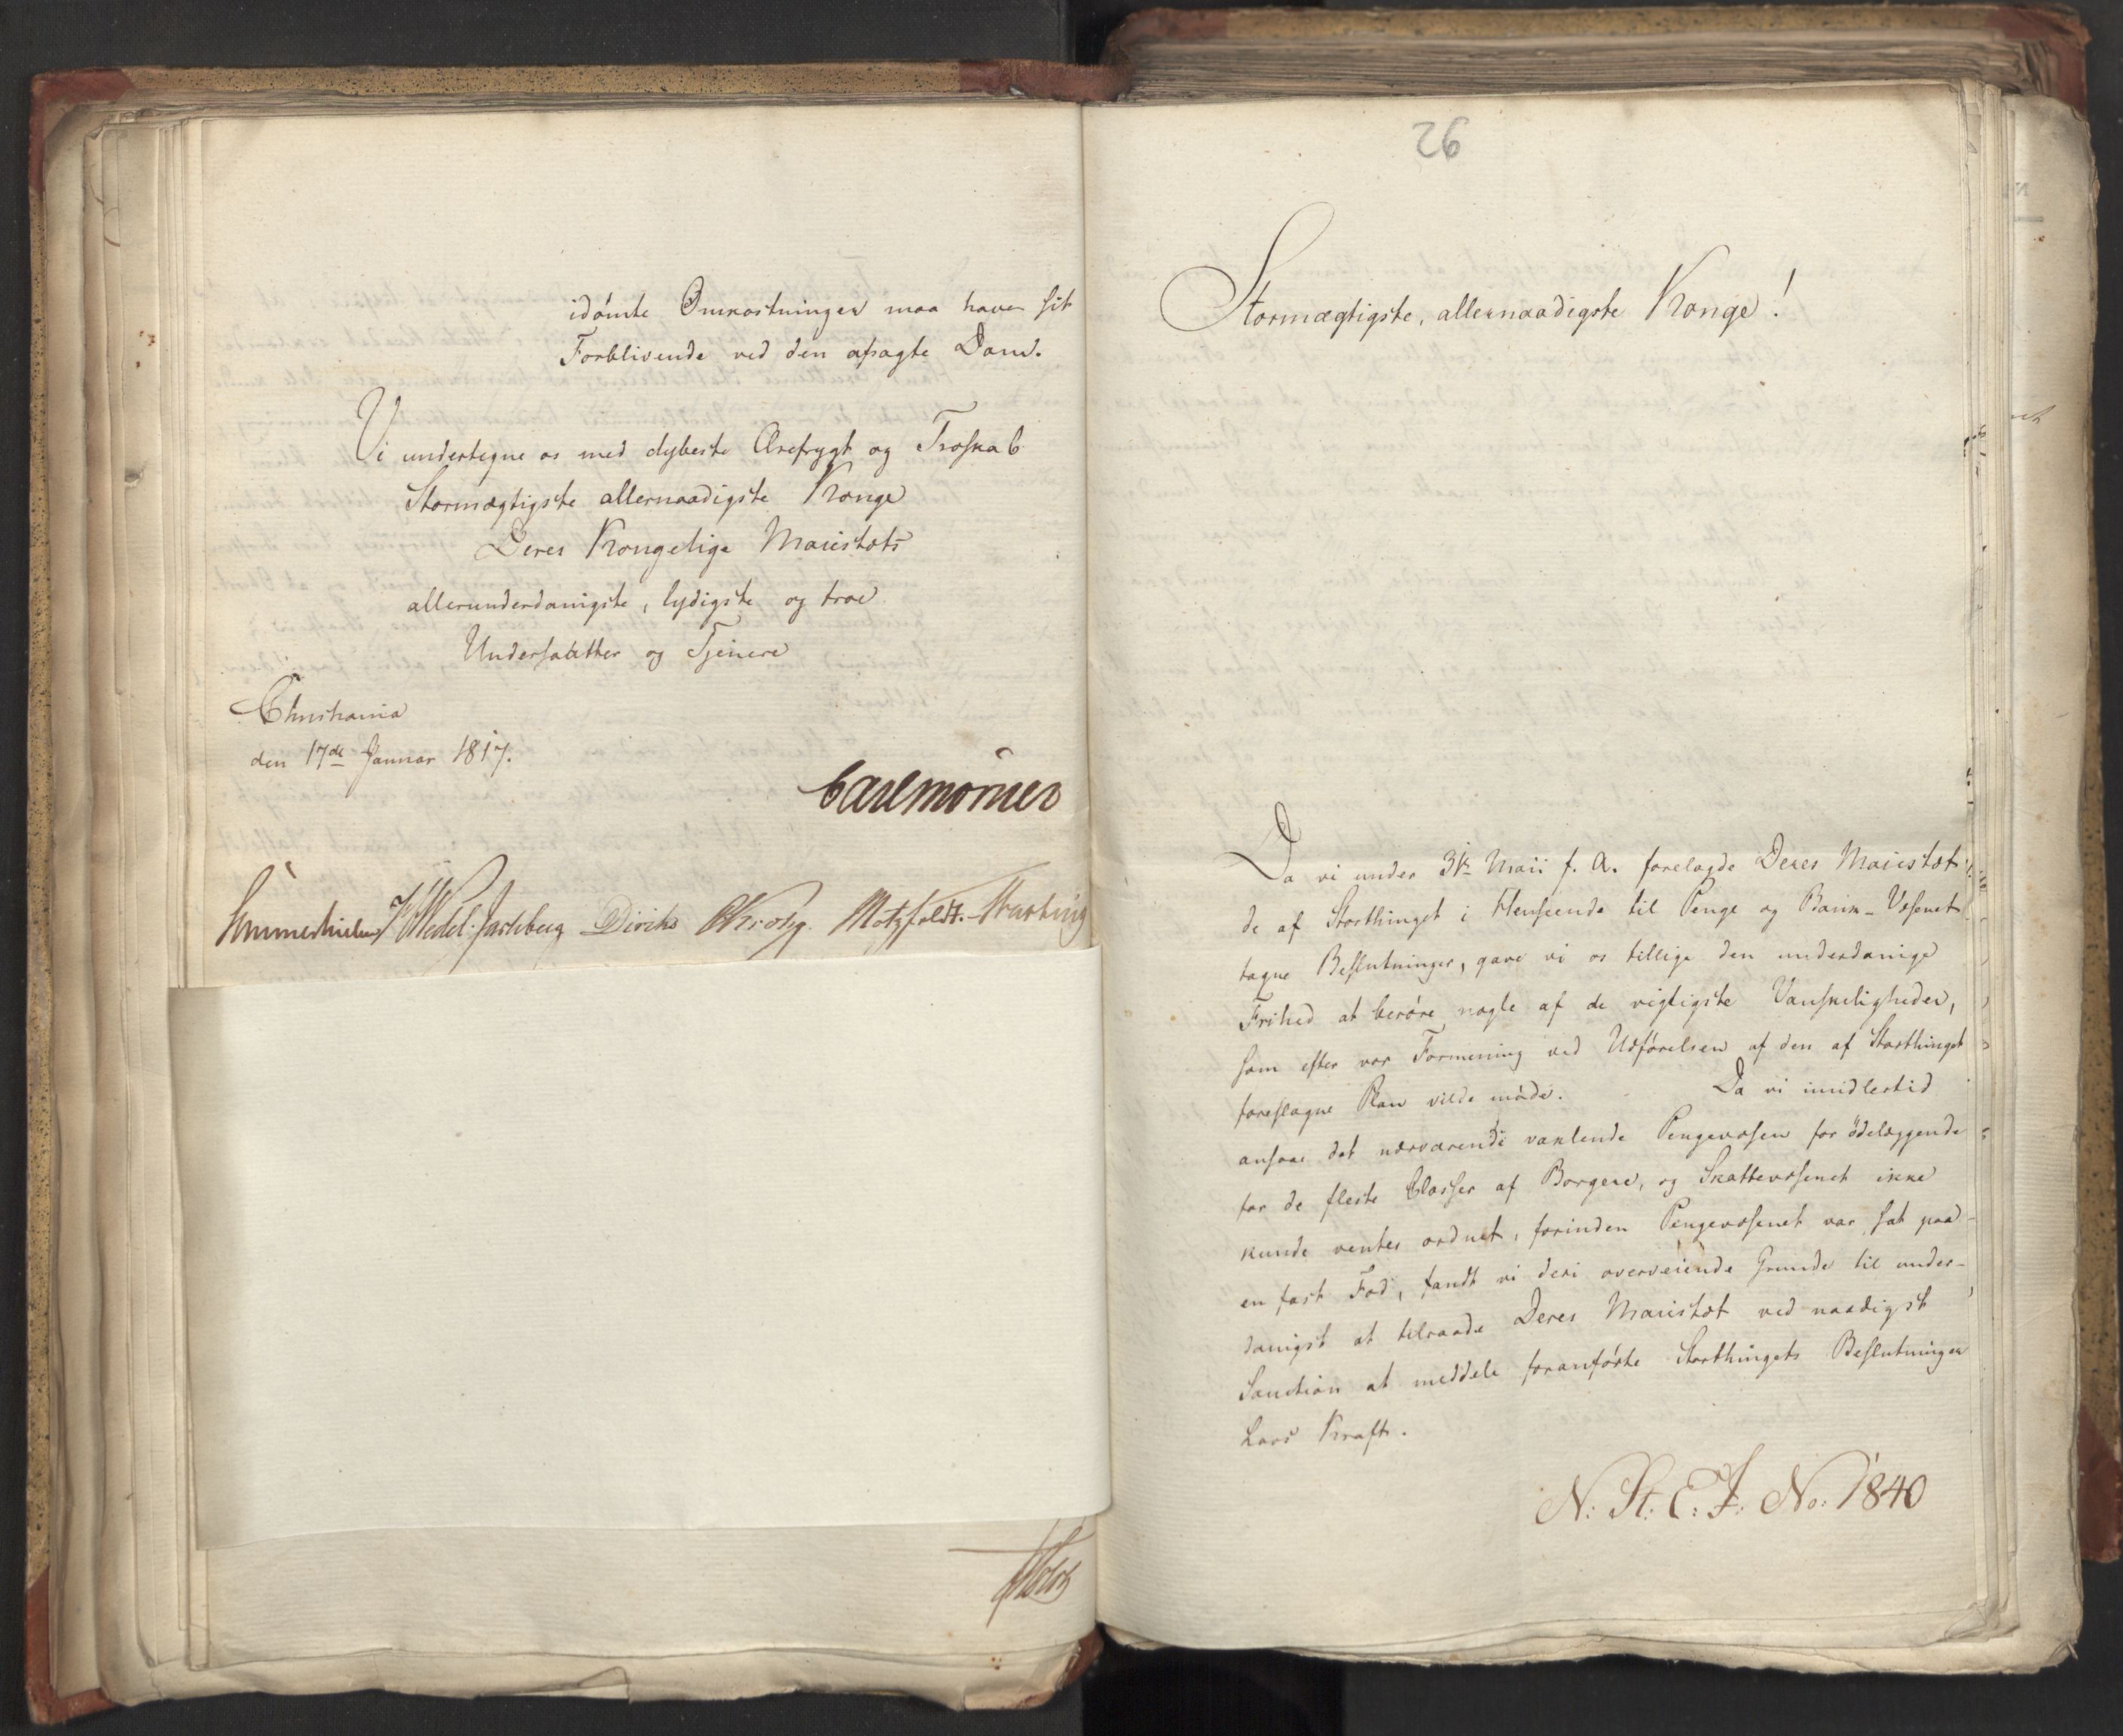 idømte Omkostninger maa have sit
Forblivende ved den afsagte Dom.
Vi undertegne os med dybeste Ærefrygt og Troskab
Stormægtigste allernaadigste Konge
Deres Kongelige Maiestæts
allerunderdanigste, lydigste og troe
Undersaatter og Tjenere
Christiania
den 17de Januar 1817.
Carl Mörner
Sommerhielm Wedel-Jarlsberg Diriks CKrohg. Motzfeldt.
Holst
26
Stormægtigste, allernaadigste Konge!
Da vi under 31te Maii f. A. forelagde Deres Maiestæt
de af Storthinget i Henseende til Penge og Bank-Væsenet
tagne Beslutninger, gave vi os tillige den underdanige
Frihed at berøre nogle af de vigtigste Vanskeligheder,
som efter vor Formening ved Udførelsen af den af Storthinget
foreslagne Plan vilde møde. Da vi imidlertid
ansaae det nærværende vaklende Pengevæsen for ødelæggende
for de fleste Classer af Borgere, og Skattevæsenet ikke
kunde ventes ordnet, forinden Pengevæsenet var sat paa
en fast Fod, fandt vi deri overveiende Grunde til under-
danigst at tilraade Deres Maiestæt ved naadigst
Sanction at meddele foranførte Storthingets Beslutninger
Lovs Kraft.
N: St: E: J: No: 1840